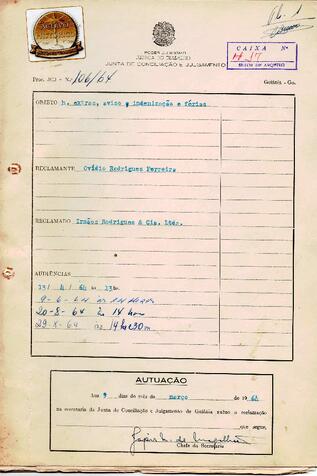 fls. 1
PODER JUDICIÁRIO
JUSTIÇA DO TRABALHO
JUNTA DE CONCILIAÇÃO E JULGAMENTO
CAIXA Nº
Proc. JCJ - N.º 106/64
Goiânia - Go.
OBJETO h. extras, aviso, indenização e férias
RECLAMANTE Ovídio Rodrigues Ferreira
RECLAMADO Irmãos Rodrigues & Cia. Ltda.
AUDIÊNCIAS
13/ 4 / 64 às 13hs
9-6-64
20-8-64 às 14 horas
29-X-64 às 14hs e 30m
AUTUAÇÃO
Aos 9 dias do mês de março de 1964
na secretaria da Junta de Conciliação e Julgamento de Goiânia autuo a reclamação
que segue,
Chefe da Secretaria